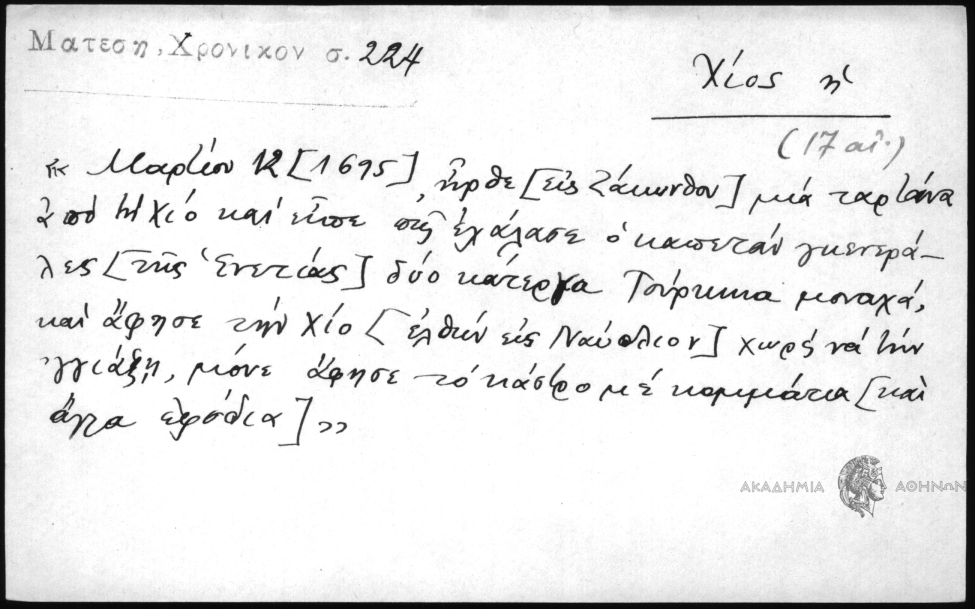 Ματεση, Χρονικον σ. 224
Χίος ἡ
(17 αἰ.)
« Μαρτίου 12 [1695] ἦρθε [εἰς Ζάκυνθον] μιά ταρτάνα
ἀπό τή Χίο καί εἶπε πῶς ἐχάλασε ὁ καπετάν γκενερά-
λες [τῆς Ἐνετίας] δύο κάτεργα Τούρκικα μοναχά,
καί ἄφησε τήν Χίο [ἐλθών εἰς Ναύπλιον] χωρίς νά τήν
γγιάξῃ, μόνε ἄφησε τό κάστρο μέ κομμάτια [καί
ἄλλα εφόδια] »
ΑΚΑΔΗΜΙΑ ΑΘΗΝΩΝ